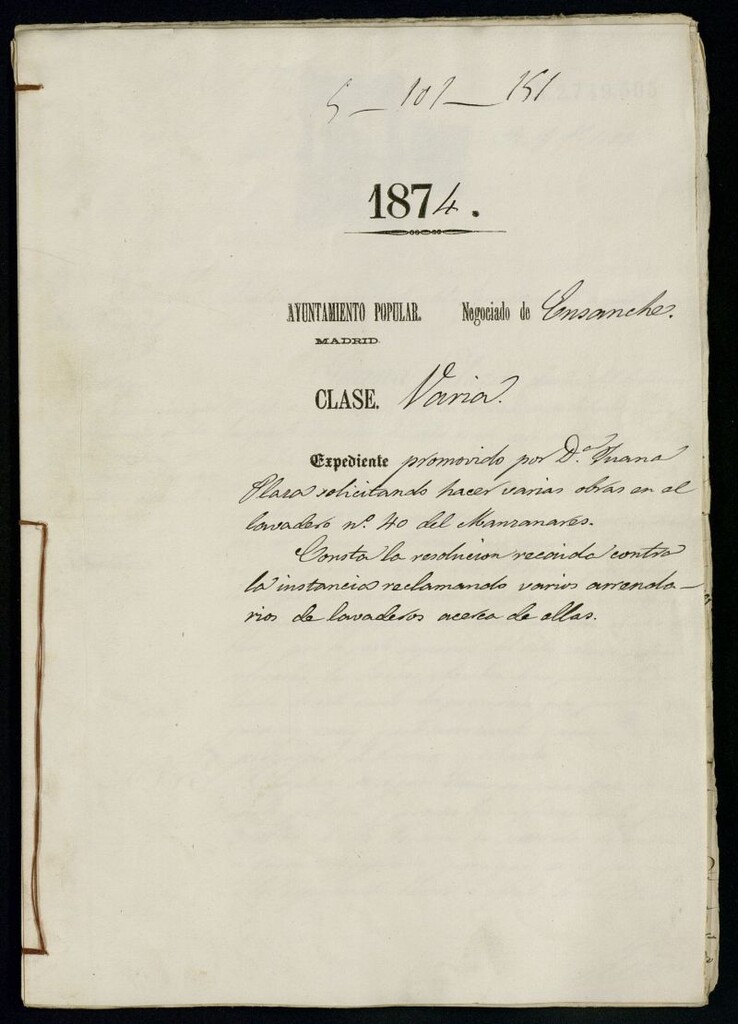 5 - 101 - 151
1874.
AYUNTAMIENTO POPULAR. Negociado de Ensanche.
MADRID.
CLASE. Varia.
Expediente promovido por D.ª Juana
Plaza solicitando hacer varias obras en el
lavadero nº. 40 del Manzanares.
Consta la resolucion recaida contra
la instancia reclamando varios arrenda-
rios de lavaderos acerca de ellas.